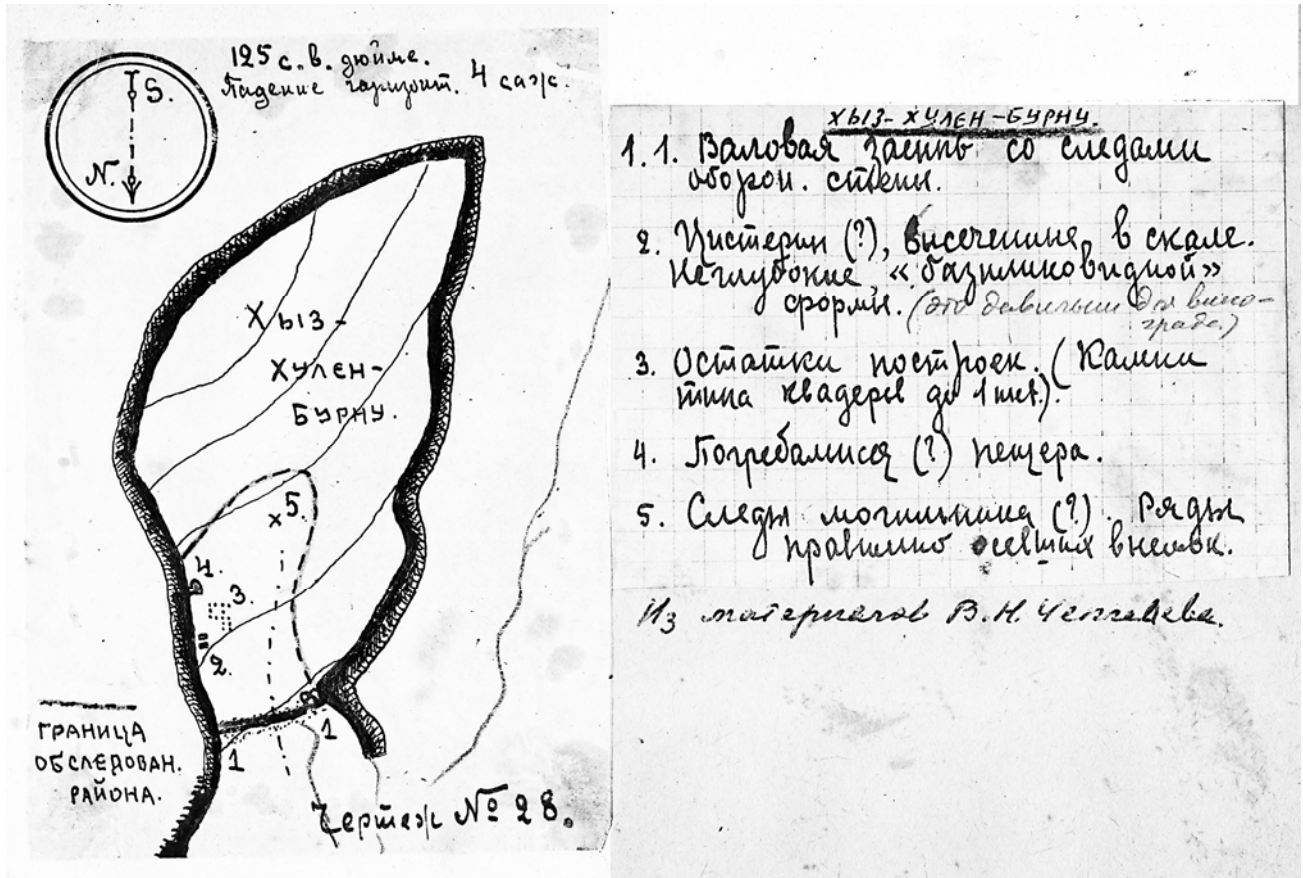 S.
N.
125 с. в. дюйме.
Падение горизонт. 4 саж.
Хыз-
Хулен-
Бурну.
5.
4.
3.
2.
1
1
ГРАНИЦА
ОБСЛЕДОВАН.
РАЙОНА.
Чертеж № 28.
ХЫЗ-ХУЛЕН-БУРНУ.
1.1. Валовая засыпь со следами
оборон. стены.
2. Цистерны (?), высеченные в скале.
Неглубокие, «базиликовидной»
формы. (это давильни для вино-
града.)
3. Остатки построек. (Камни
типа квадеров до 1 mt.).
4. Погребальная (?) пещера.
5. Следы могильника (?). Ряды
правильно осевших
Из материалов В.Н. Чепелева.